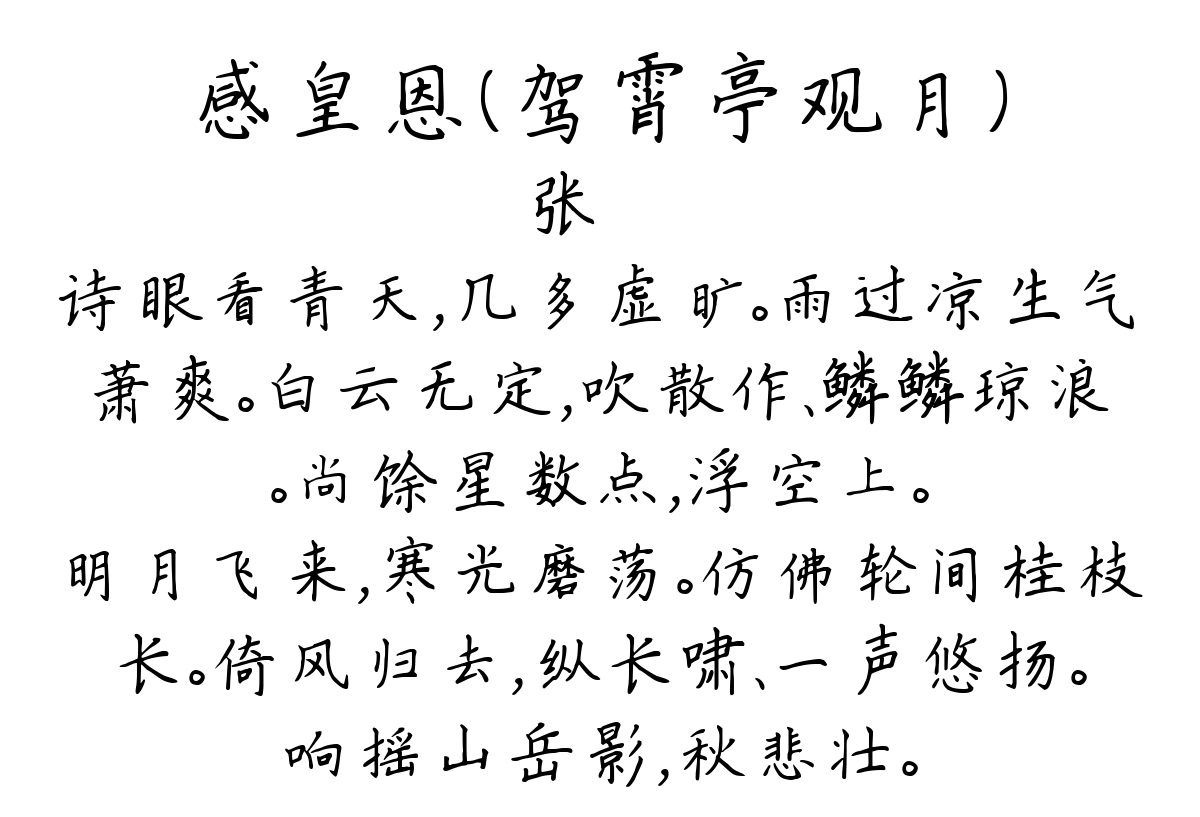 感皇恩(驾霄亭观月)
张
诗眼看青天,几多虚旷。雨过凉生气
萧爽。白云无定,吹散作、鳞鳞琼浪
。尚馀星数点,浮空上。
明月飞来,寒光磨荡。仿佛轮间桂枝
长。倚风归去,纵长啸、一声悠扬。
响摇山岳影,秋悲壮。